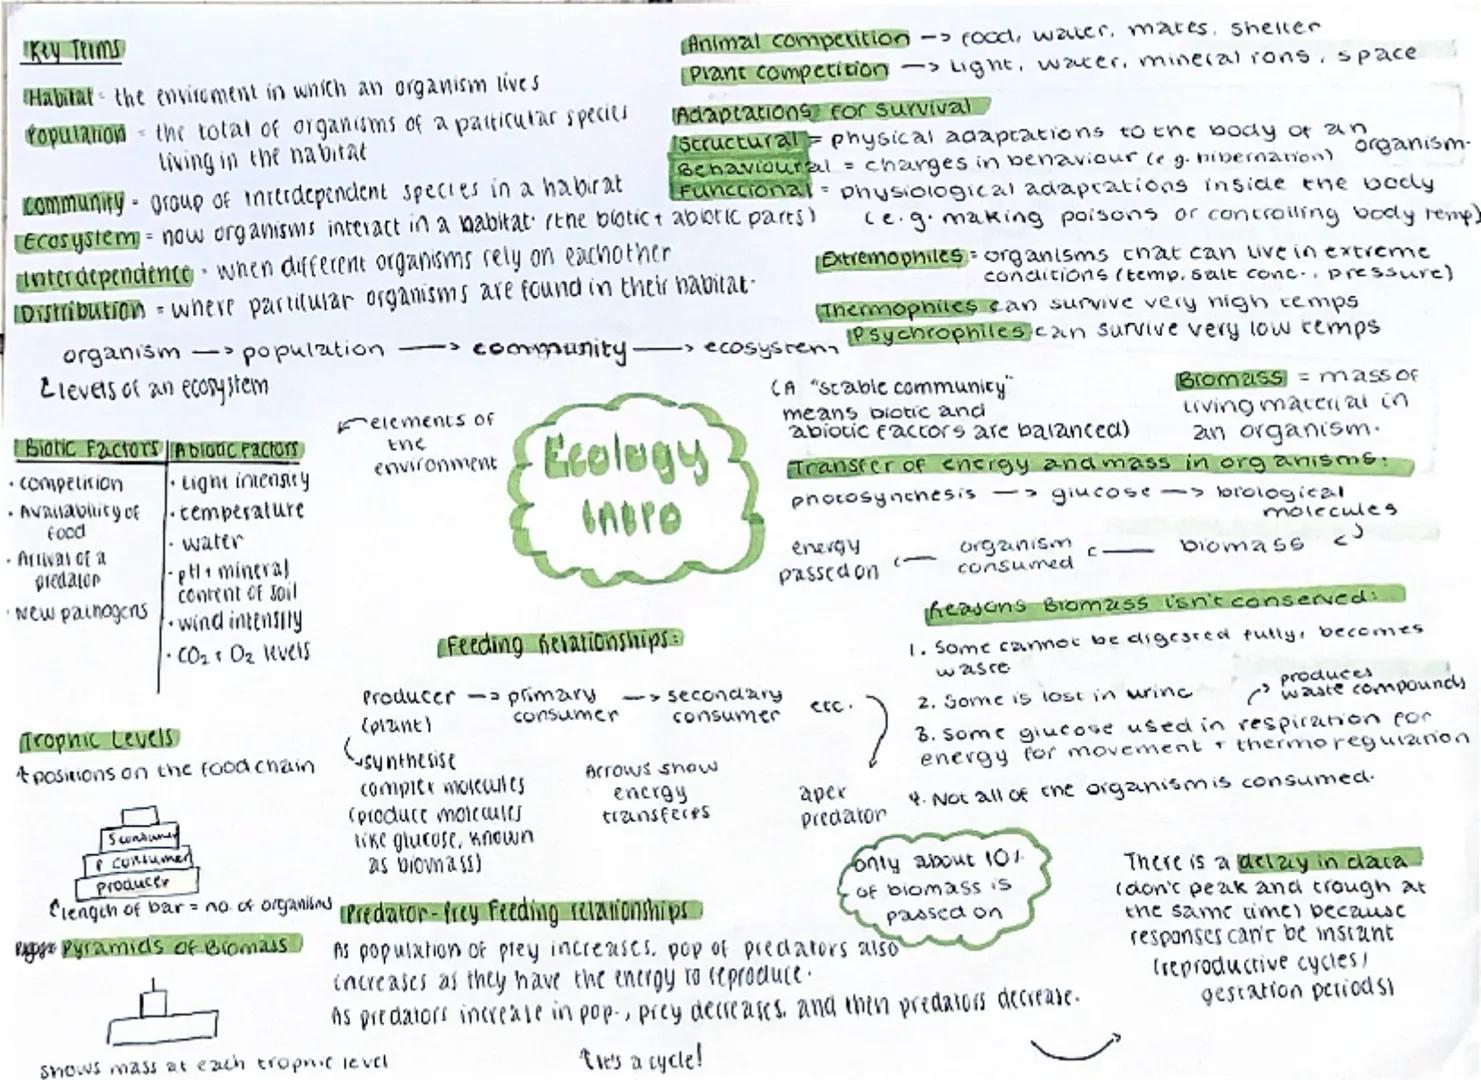 Key Terms
Habitat - the enviroment in which an organism lives
Population = the total of organisms of a particular species
living in the habitat
Community - group of interdependent species in a habitat
Ecosystem = how organisms interact in a habitat (the biotic + abiotic parts)
Interdependence - when different organisms rely on eachother
Distribution = where particular organisms are found in their habitat.
organism -> population -> community -> ecosystem
levels of an ecosystem
Animal competition -> food, water, mates, shelter
Plant competition -> Light, water, mineral ions, space
Adaptations for survival
Structural = physical adaptations to the body of an organism.
Behavioural = changes in behaviour (e.g. hibernation)
Functional = physiological adaptations inside the body
(e.g. making poisons or controlling body temp)
Extremophiles = organisms that can live in extreme
conditions (temp, salt conc., pressure)
Thermophiles can survive very high temps
Psychrophiles can survive very low temps
Biotic Factors
· competition
· Availability of
food
· Arrival of a
predator
· New pathogens
Abiotic Factors
· Light intensity
· temperature
· water
· pH + mineral
content of soil
· wind intensity
· CO₂ + O₂ levels
elements of
the
environment
Ecology
Intro
(A "stable community"
means biotic and
abiotic factors are balanced)
Biomass = mass of
living material in
an organism.
Transfer of energy and mass in organisms:
photosynthesis -> glucose -> biological
molecules
energy
passed on <- organism
consumed <- biomass <-
Reasons Biomass isn't conserved:
1. Some cannot be digested fully, becomes
waste
2. Some is lost in urine
produces
waste compounds
3. Some glucose used in respiration for
energy for movement + thermoregulation
4. Not all of the organism is consumed.
Feeding Relationships:
Producer -> primary
consumer -> secondary
consumer etc.
(plant)
synthesise
complex molecules
(produce molecules
like glucose, known
as biomass)
Arrows show
energy
transferes
apex
predator
Trophic Levels
positions on the food chain
S consumer
P consumer
producer
length of bar = no. of organisms
Pyramids of Biomass
shows mass at each trophic level
only about 10%
of biomass is
passed on
There is a delay in data
(don't peak and trough at
the same time) because
responses can't be instant
(reproductive cycles /
gestation periods)
Predator-Prey Feeding relationships
As population of prey increases, pop of predators also
increases as they have the energy to reproduce.
As predators increase in pop., prey decreases, and then predators decrease.
it's a cycle!